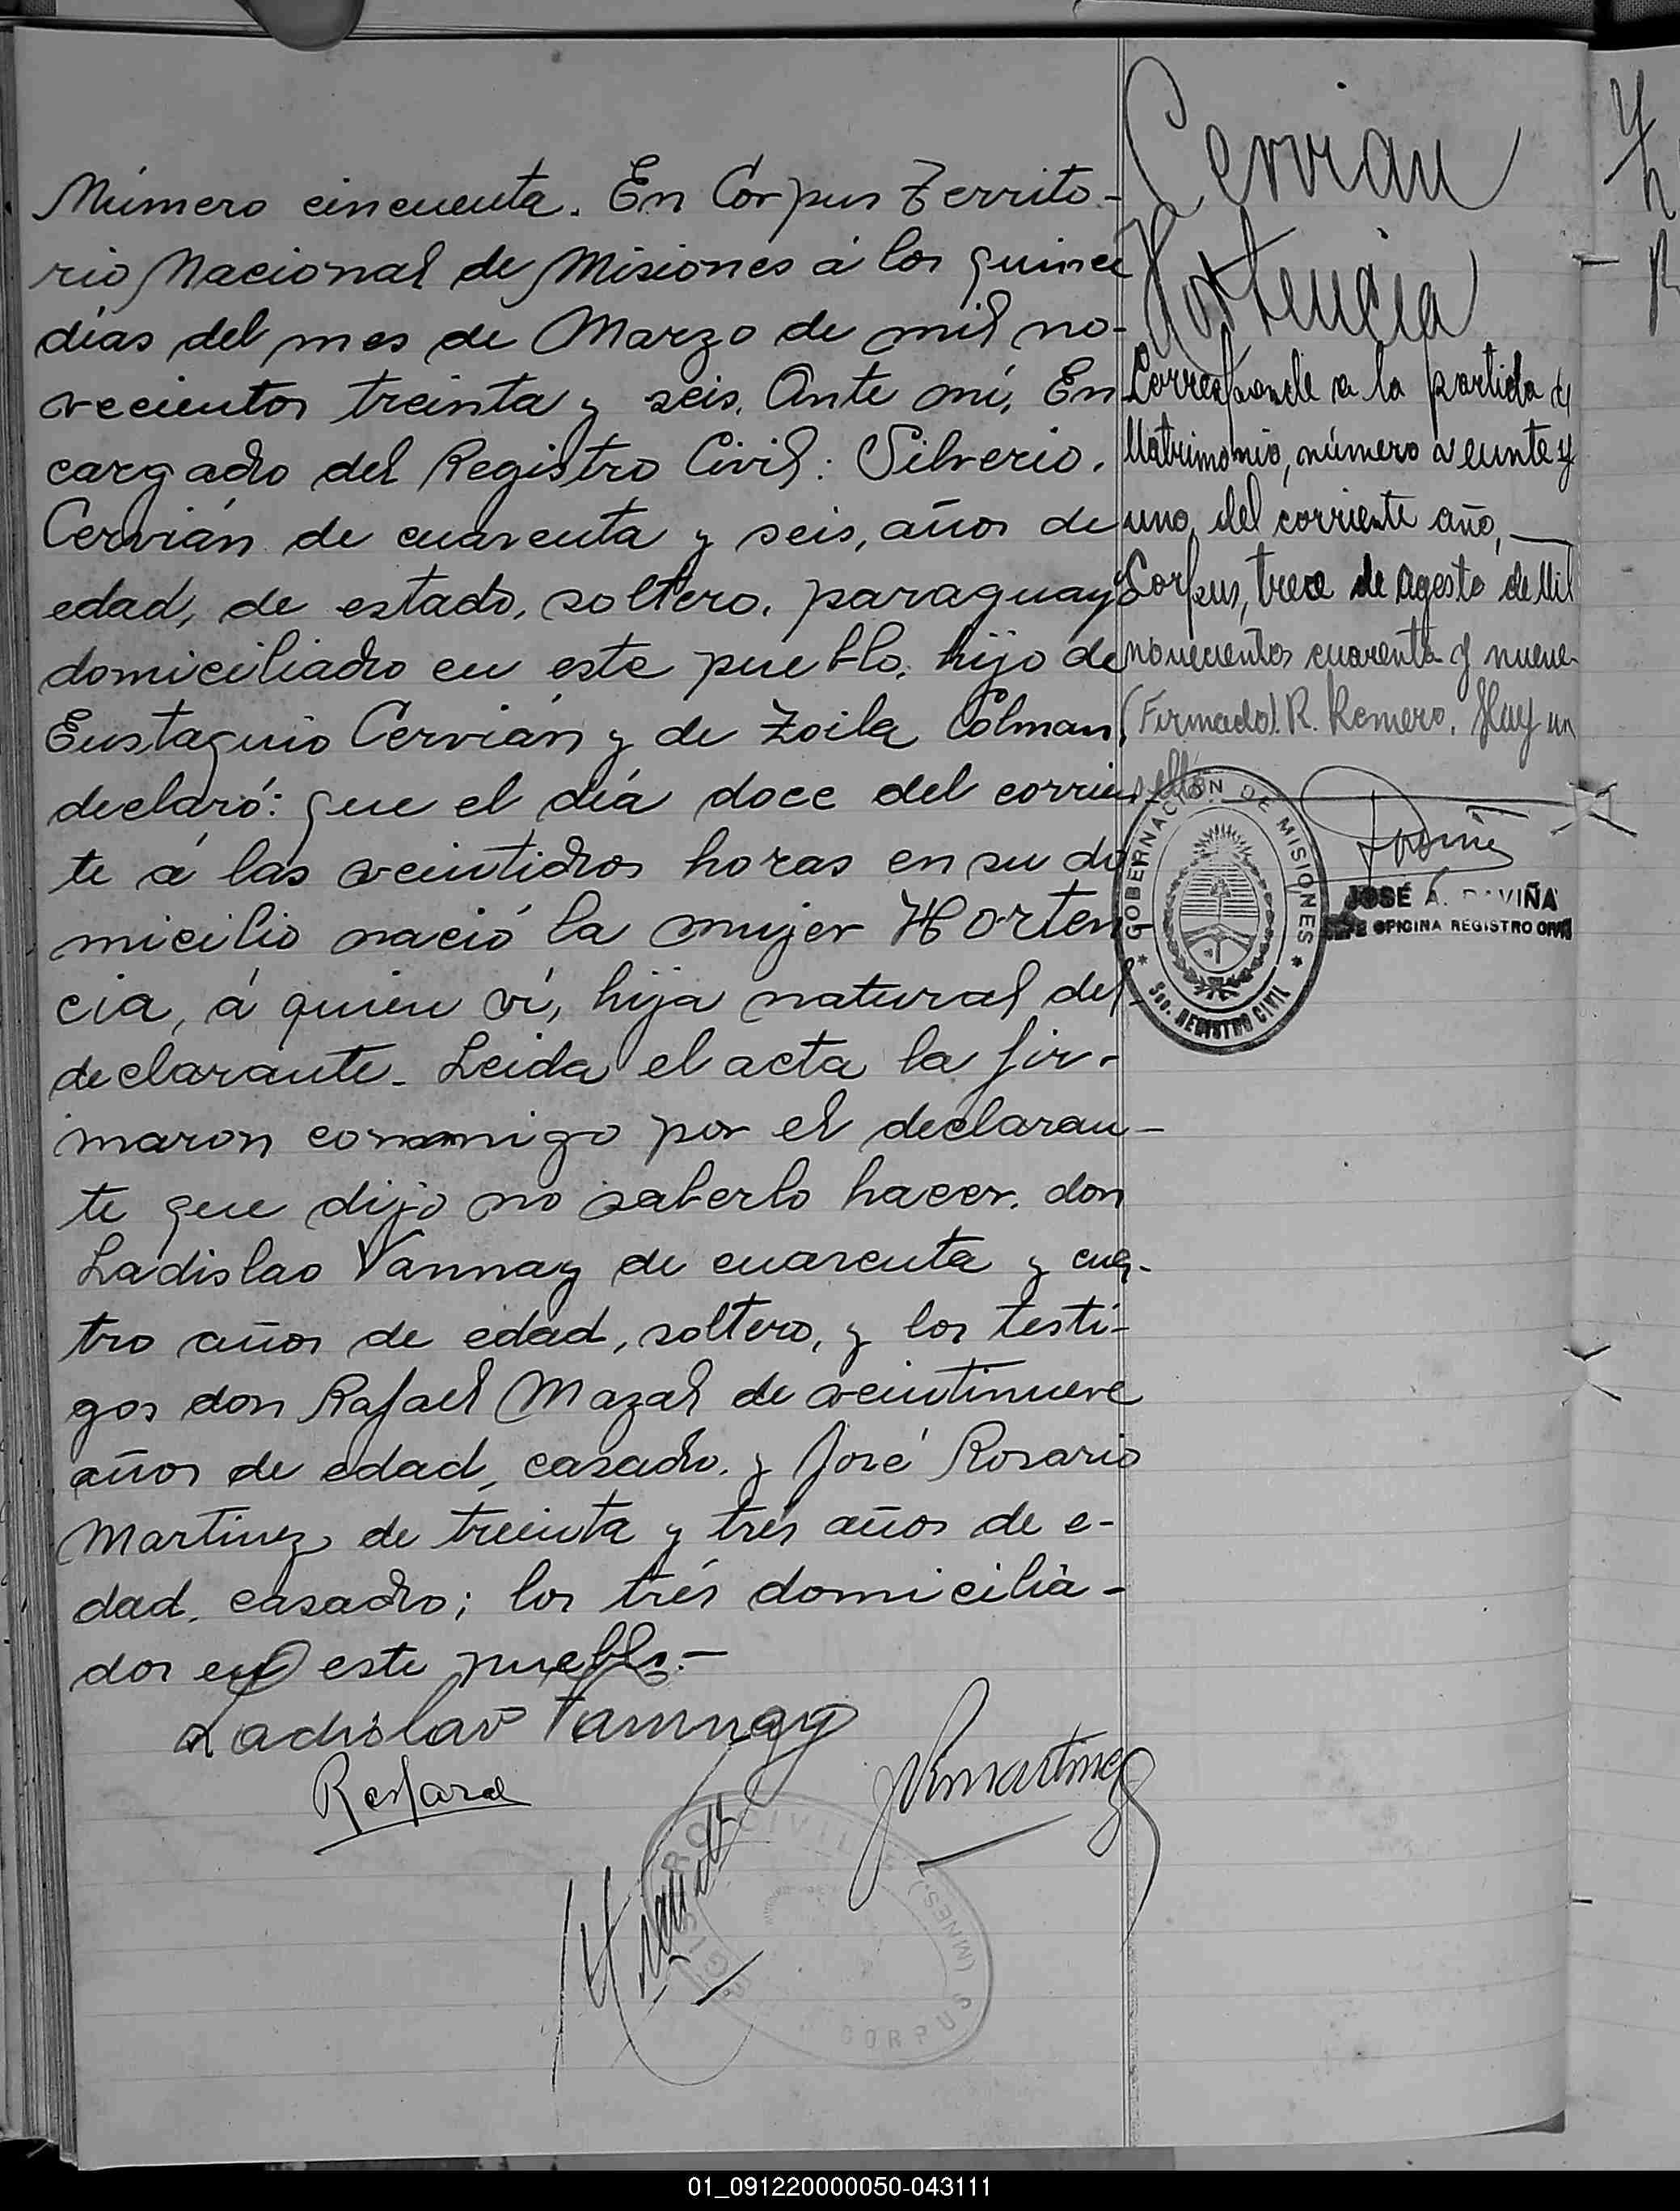 Número cincuenta. En Corpus Territo-
rio Nacional de Misiones á los quince
días del mes de Marzo de mil no-
vecientos treinta y seis. Ante mí, En
cargado del Registro Civil: Silverio.
Cervián de cuarenta y seis, años de
edad, de estado, soltero, paraguayo
domiciliado en este pueblo. hijo de
Eustaquio Cervián y de Zoila Colman,
declaró: que el día doce del corrien
te á las veintidos horas en su do
micilio nació la mujer Horten
cia, á quien ví, hija natural del
declarante. Leida el acta la fir-
maron conmigo por el declaran-
te que dijo no saberlo hacer. don
Ladislao Vannay de cuarenta y cua-
tro años de edad, soltero, y los testi-
gos don Rafael Mazal de veintinueve
años de edad, casado. y José Rosario
Martinez de treinta y trés años de e-
dad. casado; los trés domicilia-
dos en este pueblo.-
Ladislao Vannay
JRmartinez
REGISTRO CIVIL
CORPUS (MNES.)
Cervian
Hortencia
Corresponde a la partida de
Matrimonio, número veinte y
uno, del corriente año,
Corpus, trece de Agosto de Mil
novecientos cuarenta y nueve
(Firmado). R. Romero. Hay un
sello.
GOBERNACIÓN DE MISIONES
Scc. REGISTRO CIVIL
JOSÉ A. VIÑA
JEFE OFICINA REGISTRO CIVIL
01_091220000050-043111